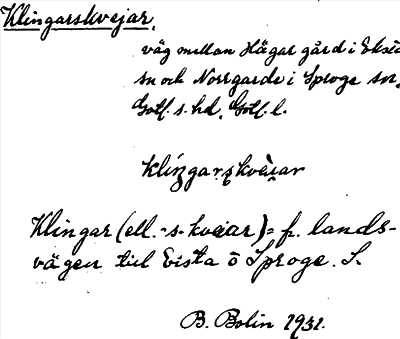 Klingarskvejar,
väg mellan Hägar gård i Eksta
sn och Norrgarde i Sproge sn,
Gotl. s. hd, Gotl. l.
klingarskvèiar
Klingar (ell. -s-kvejar) = fr. lands-
vägen till Eista ö Sproge. S.
B. Bolin 1931.